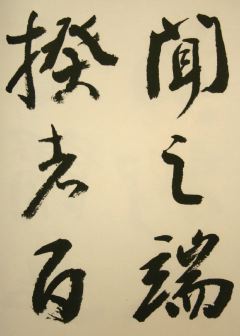 聞之端
揆者百